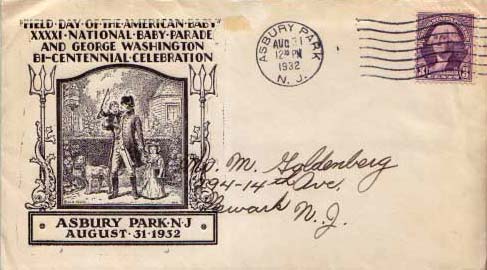 "FIELD DAY OF THE AMERICAN BABY"
XXXXI · NATIONAL · BABY · PARADE
AND GEORGE WASHINGTON
BI-CENTENNIAL · CELEBRATION
ASBURY PARK · N · J
AUGUST · 31 · 1932
ASBURY PARK
AUG 31
12 PM
1932
N. J.
3 3
M. Goldenberg
494-14th Ave.
Newark N. J.